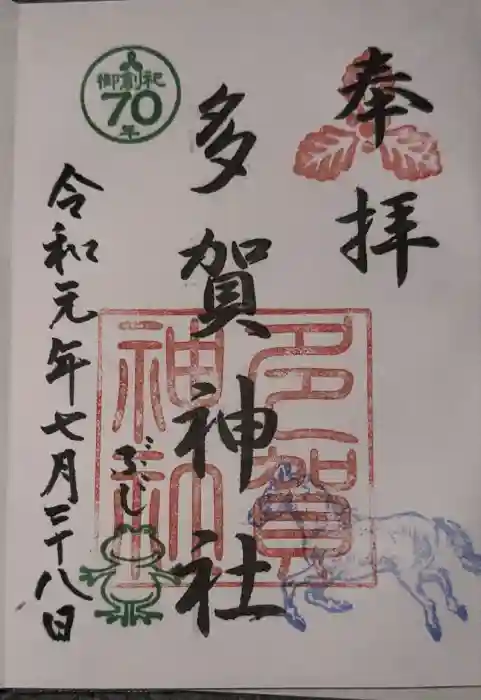 奉拝
多賀神社
多賀
神社
御創祀
70
年
ぶじ
令和元年七月二十八日